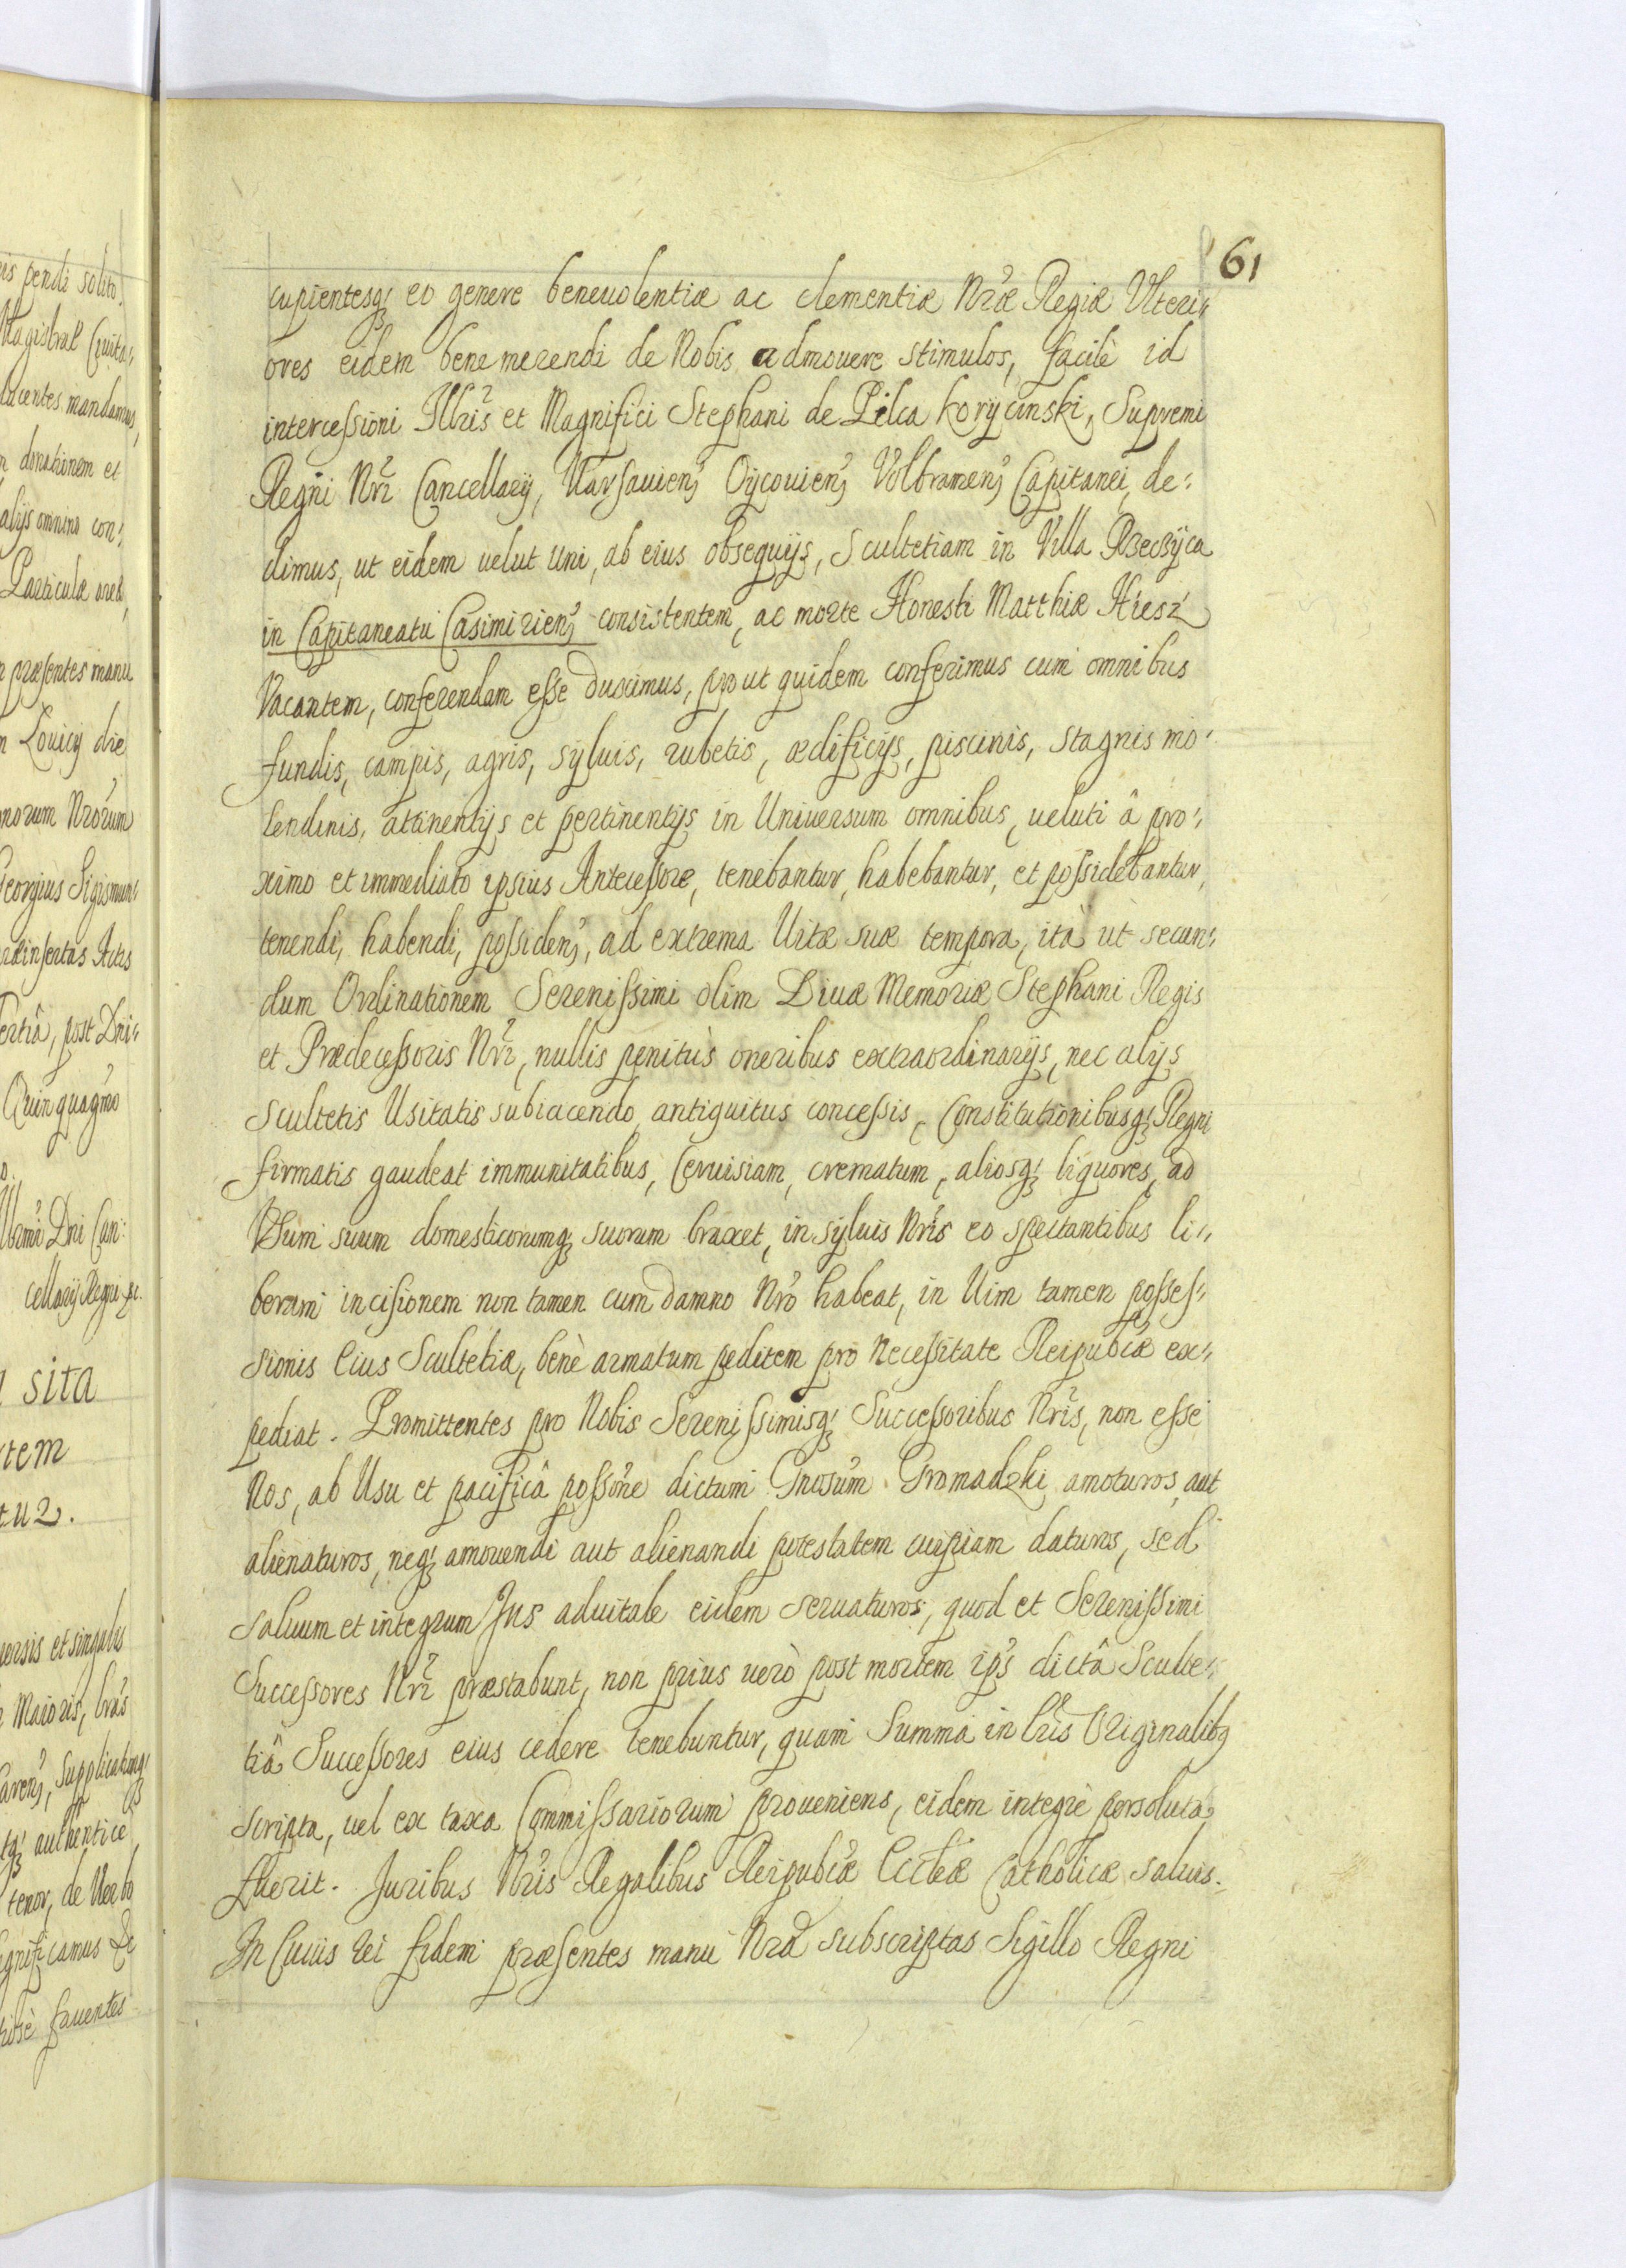 61
cupientesq3 eo genere beneuolentiæ ac clementiæ Nræ Regiæ Vlteri„
ores eidem bene merendi de Nobis admouere stimulos, facilè id
intercessioni Illris et Magnifici Stephani de Pilca Korycinski, Supremi
Regni Nri Cancellarÿ, Varsauien, Oycouien, Volbramen, Capitanei, de„
dimus, ut eidem uelut uni, ab eius obsequijs, Scultetiam in Villa Rzeczyca
in Capitaneatu Casimirien, consistentem, ac morte Honesti Matthiæ Hiesz
Vacantem, conferendam esse duximus, prout quidem conferimus cum omnibus
fundis, campis, agris, syluis, rubetis, ædificijs, piscinis, stagnis mo„
lendinis, attinentijs et pertinentijs in Uniuersum omnibus, ueluti â pro„
ximo et immediato ipsius Antecessore, tenebantur, habebantur, et possidebantur,
tenendi, habendi, possiden, ad extrema Uitæ suæ tempora, ità ut secun„
dum Ordinationem Serenissimi olim Diuæ Memoriæ Stephani Regis
et Prædecessoris Nri, nullis penitùs oneribus extraordinarijs, nec alijs
Scultetis Usitatis subiacendo, antiquitus concessis, Constitutionibusq3 Regni
firmatis gaudeat immunitatibus, Ceruisiam, crematum, aliosq3 liquores, ad
Usum suum domesticorumq3 suorum braxet, in syluis Nris eo spectantibus li„
beram incisionem non tamen cum damno Nro habeat, in Uim tamen posses„
sionis Eius Scultetiæ, benè armatum peditem pro Necessitate Reipubcæ ex„
pediat. Promittentes pro Nobis Serenissimisq3 Successoribus Nris, non esse
Nos, ab Usu et pacificâ possone dictum Gnosum Gromadzki amoturos, aut
alienaturos, neq3 amouendi aut alienandi potestatem cuipiam daturos, sed
Saluum et integrum Jus aduitale eidem seruaturos, quod et Serenissimi
Successores Nri præstabunt, non prius uerò post mortem ips dictâ Sculte„
tiâ Successores eius cedere tenebuntur, quam Summa in Lris Originalibq
scripta, uel ex taxa Commissariorum proueniens, eidem integrè persoluta
fuerit. Juribus Nris Regalibus Reipubcæ Eccleæ Catholicæ saluis.
In Cuius rei fidem præsentes manu Nrâ subscriptas Sigillo Regni
is pendi solito.
Magistral Ciuita„
ducentes mandamus,
n donationem et
alijs omnino con„
Particulæ
præsentes manu
n Louicij die
norum Nrorum
Georgius Sigismun„
Actis
ertiâ, post Dni„
Quinquagmo
Dni Can„
cellarij Regni
sita
tem
tu2.
uersis et singulis
Maioris, 
auen, supplicatumq3
tq3 authenticè
tenor, de Uerbo
gnificamus
fauentes